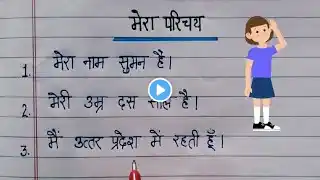 मेरा परिचय
1. मेरा नाम सुमन है।
2. मेरी उम्र दस साल है।
3. मैं उत्तर प्रदेश में रहती हूँ।